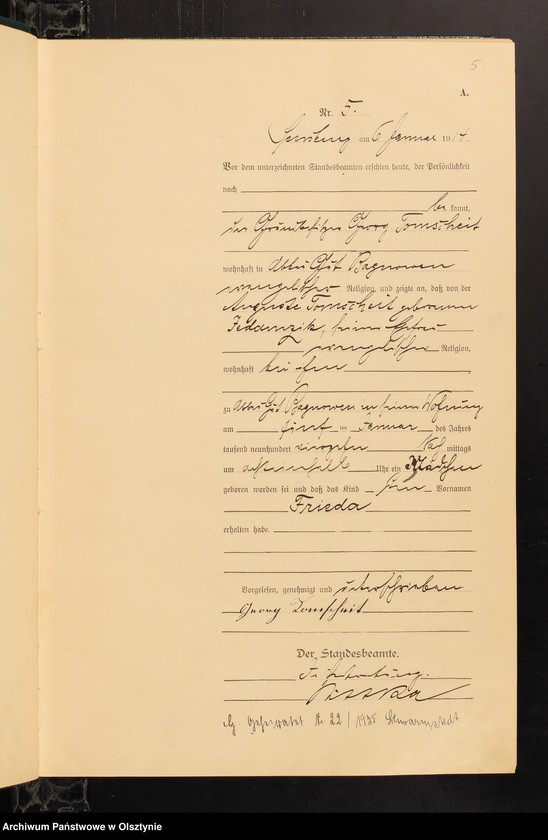 5
A.
Nr. 5.
am 6 Januar 1914
Vor dem unterzeichneten Standesbeamten erschien heute, der Persönlichkeit
nach
be kannt,
der Grundbesitzer Georg Tomscheit
wohnhaft in Abbau Gut Bagnowen
evangelischer Religion, und zeigte an, daß von der
Auguste Tomscheit geborenen
Jedamzik, seiner Ehefrau
evangelischer Religion,
wohnhaft bei ihm
zu Abbau Gut Bagnowen in seiner Wohnung
am fünf ten Januar des Jahres
tausend neunhundert vierzehn Nach mittags
um Uhr ein Mädchen
geboren worden sei und daß das Kind den Vornamen
Frieda
erhalten habe.
Vorgelesen, genehmigt und unterschrieben
Georg Tomscheit
Der Standesbeamte.
In Vertretung.
Geheiratet Nr. 22/1935 Schwarmstedt
Archiwum Państwowe w Olsztynie